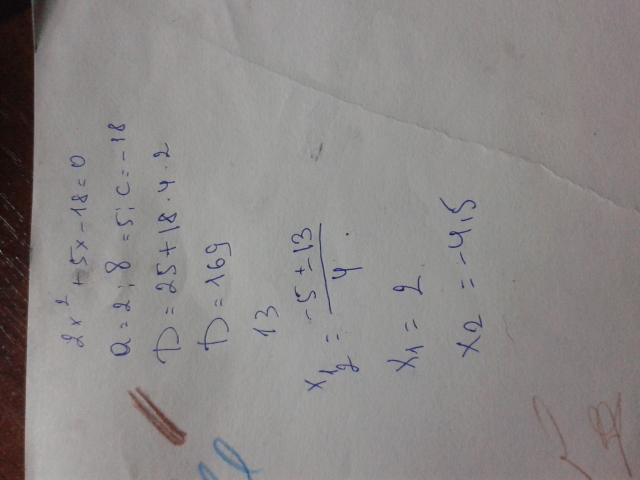 2x² + 5x - 18 = 0
a = 2; в = 5; c = -18
D = 25 + 18 · 4 · 2
D = 169
13
x₁,₂ = (-5 ± 13)/4
x₁ = 2
x₂ = -4,5